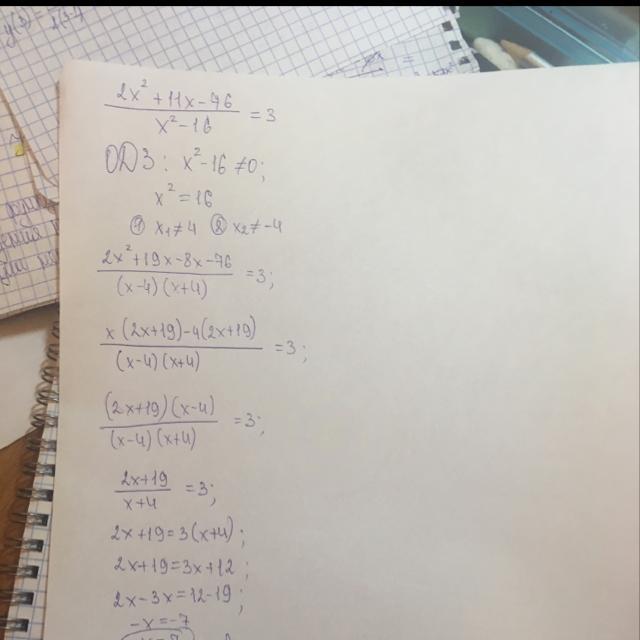 2x² + 11x - 76 / x² - 16 = 3
ОДЗ: x² - 16 ≠ 0;
x² = 16
① x₁ ≠ 4 ② x₂ ≠ -4
2x² + 19x - 8x - 76 / (x-4)(x+4) = 3;
x(2x+19) - 4(2x+19) / (x-4)(x+4) = 3;
(2x+19)(x-4) / (x-4)(x+4) = 3;
2x+19 / x+4 = 3;
2x+19=3(x+4);
2x+19=3x+12;
2x-3x=12-19;
-x=-7